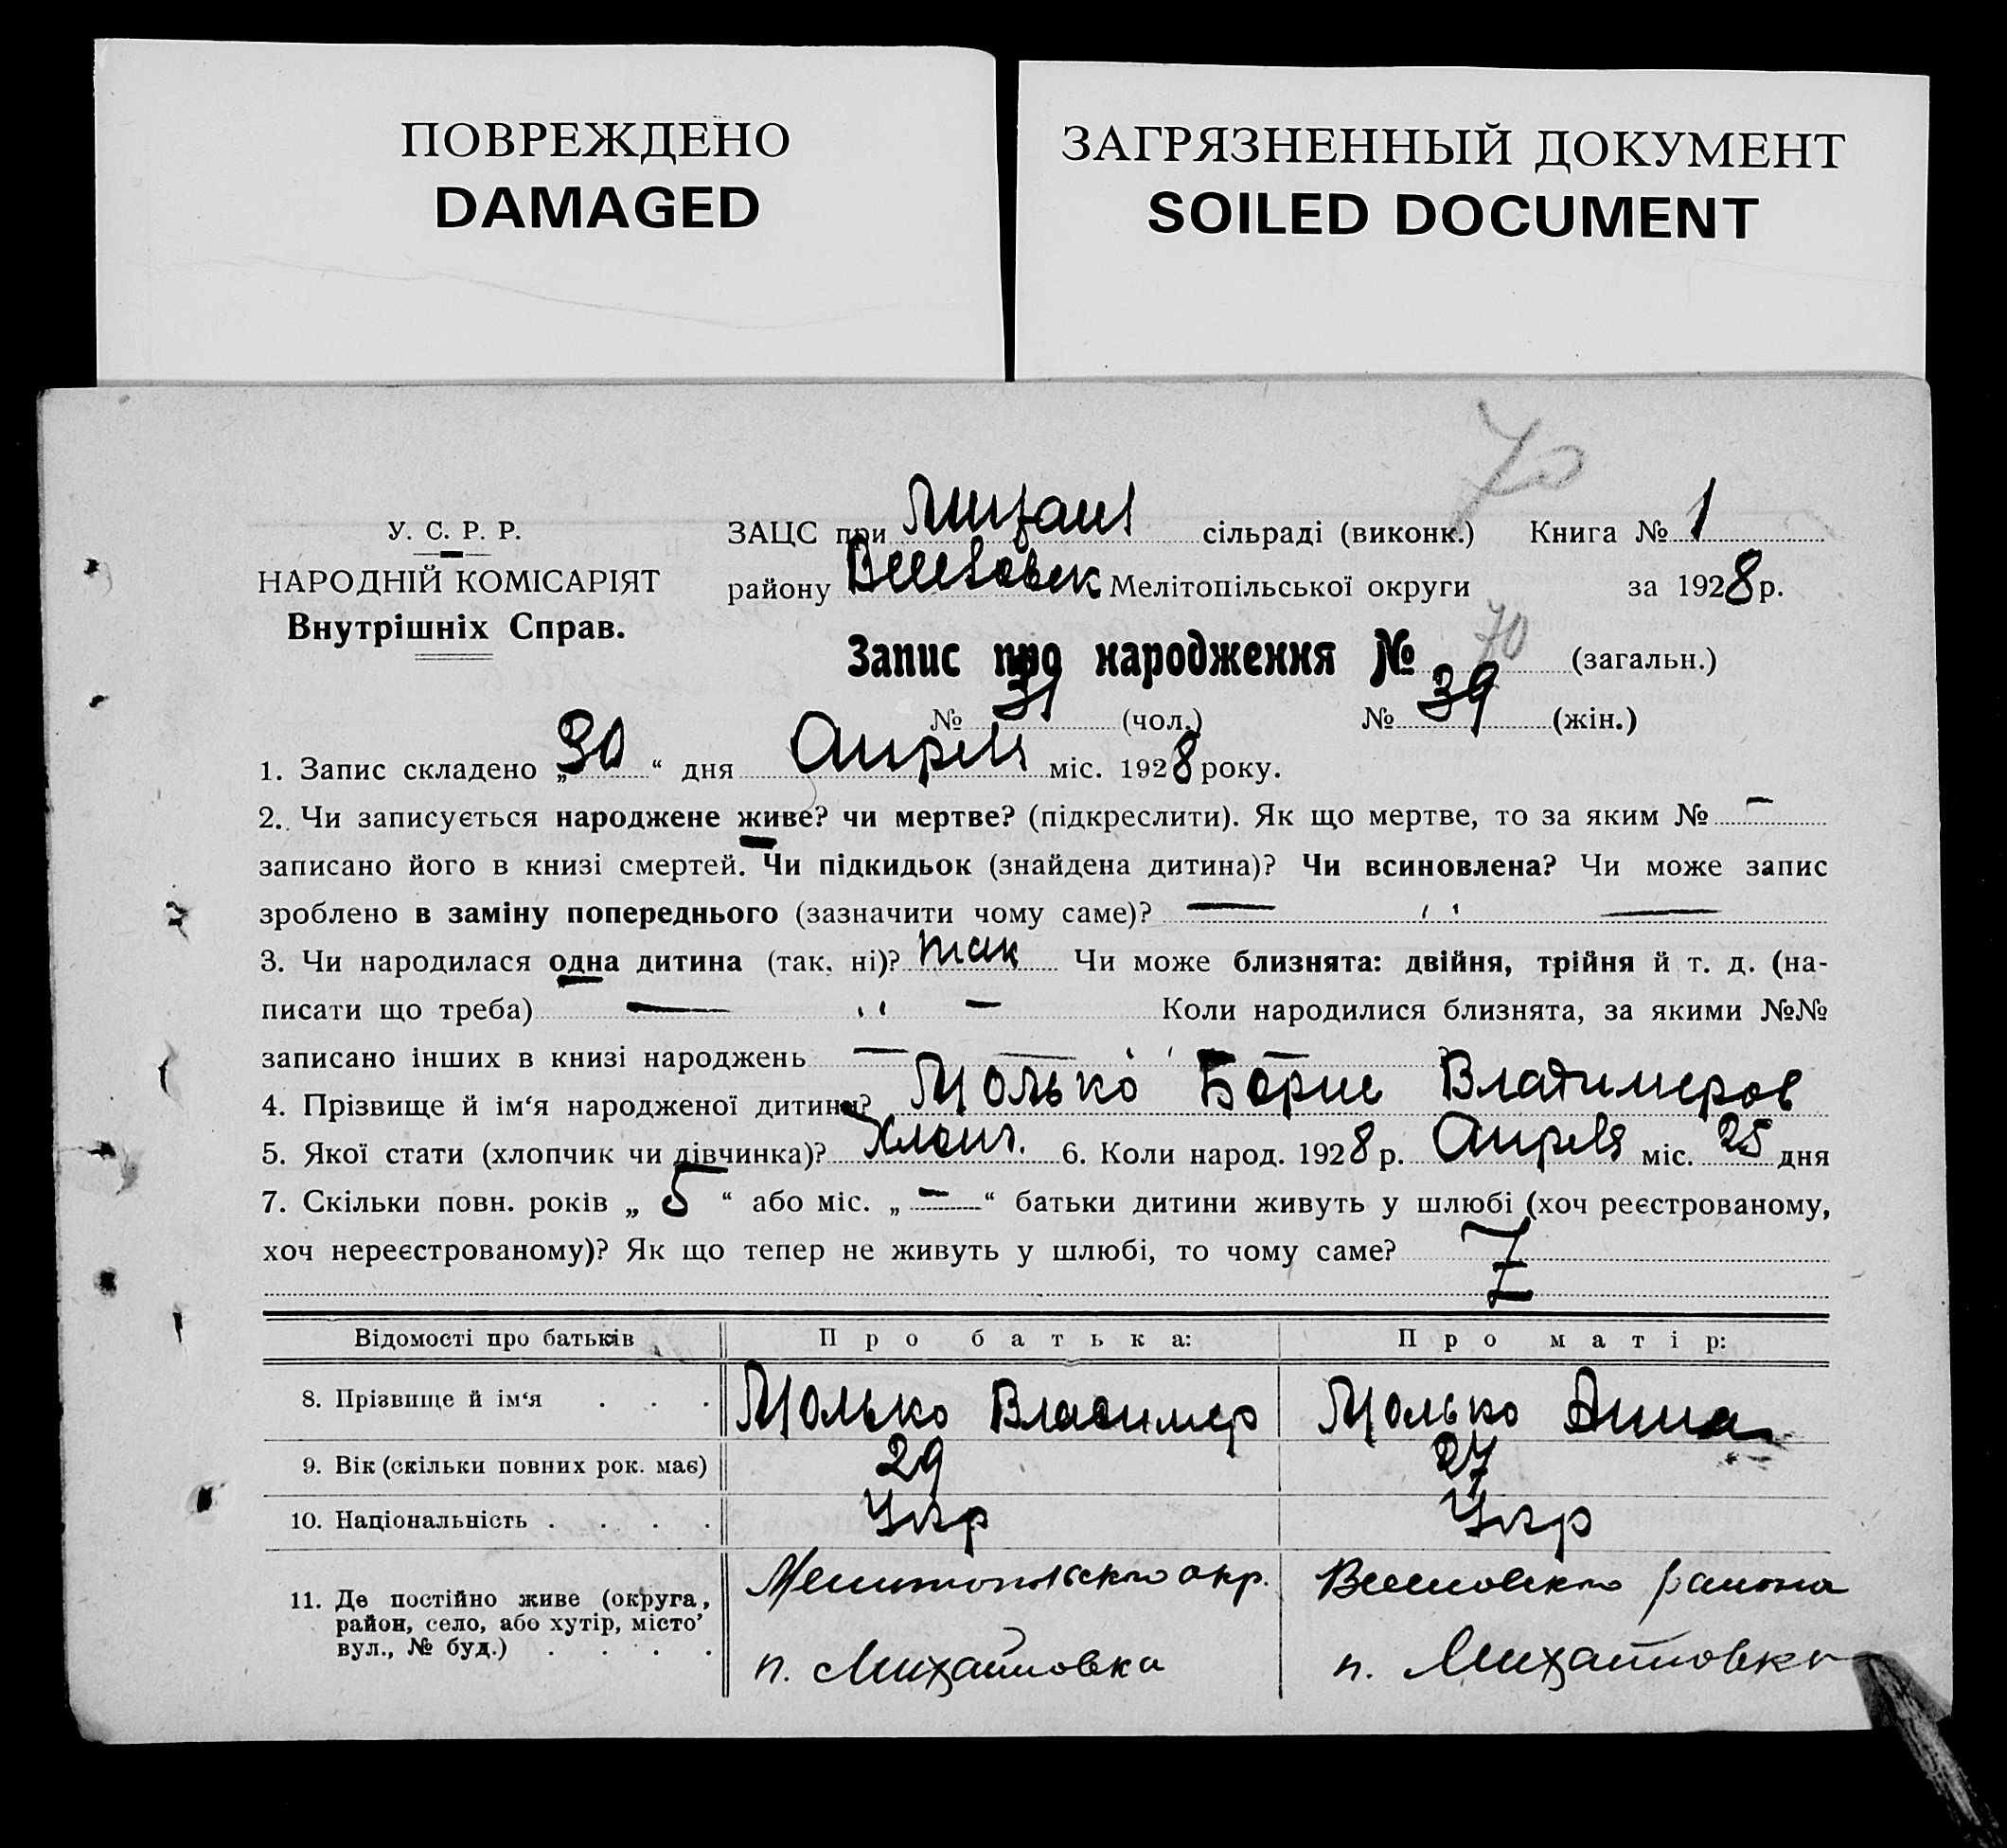 ПОВРЕЖДЕНО
DAMAGED
ЗАГРЯЗНЕННЫЙ ДОКУМЕНТ
SOILED DOCUMENT
70
У. С. Р. Р.
НАРОДНІЙ КОМІСАРІЯТ
Внутрішніх Справ.
ЗАЦС при Михайл сільраді (виконк.) Книга № 1
району Веселовск Мелітопільської округи за 1928 р.
Запис про народження № 70 (загальн.)
№ 31 (чол.) № 39 (жін.)
1. Запис складено „30“ дня Апреля міс. 1928 року.
2. Чи записується народжене живе? чи мертве? (підкреслити). Як що мертве, то за яким № —
записано його в книзі смертей. Чи підкидьок (знайдена дитина)? Чи всиновлена? Чи може запис
зроблено в заміну попереднього (зазначити чому саме)? — " —
3. Чи народилася одна дитина (так, ні)? так Чи може близнята: двійня, трійня й т. д. (на-
писати що треба) — " — Коли народилися близнята, за якими №№
записано інших в книзі народжень — — " — —
4. Прізвище й ім‘я народженої дитини? Молько Борис Владимеров
5. Якої стати (хлопчик чи дівчинка)? Хлопч. 6. Коли народ. 1928 р. Апреля міс. 25 дня
7. Скільки повн. років „ 5 “ або міс. „ — “ батьки дитини живуть у шлюбі (хоч реєстрованому,
хоч нереєстрованому)? Як що тепер не живуть у шлюбі, то чому саме?
Відомості про батьків Про батька: Про матір:
8. Прізвище й ім‘я . . . Молько Владимер Молько Анна
9. Вік (скільки повних рок. має) 29 27
10. Національність . . . . Укр Укр
11. Де постійно живе (округа, район, село, або хутір, місто’ вул., № буд.) . . . .
Мелитопольского окр. Веселовского района
п. Михайловка п. Михайловка